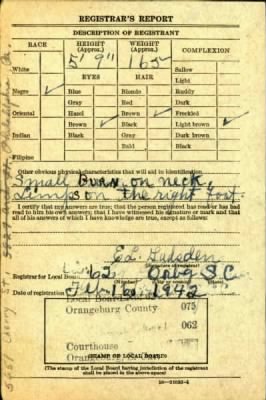 REGISTRAR'S REPORT
DESCRIPTION OF REGISTRANT
RACE HEIGHT (Approx.) WEIGHT (Approx.) COMPLEXION
5' 9" 165
White Sallow
EYES HAIR Light
Negro ✓ Blue Blonde Ruddy
Gray Red Dark
Oriental Hazel Brown Freckled
Brown ✓ Black ✓ Light brown ✓
Indian Black Gray Dark brown
Bald Black
Filipino
Other obvious physical characteristics that will aid in identification
Small Burn on neck,
on the right foot.
I certify that my answers are true; that the person registered has read or has had
read to him his own answers; that I have witnessed his signature or mark and that
all of his answers of which I have knowledge are true, except as follows:
Registrar for Local Board 62 S C
Date of registration Feb 16 1942
Local Board
Orangeburg County 075
062
Courthouse
(STAMP OF LOCAL BOARD)
(The stamp of the Local Board having jurisdiction of the registrant
shall be placed in the above space)